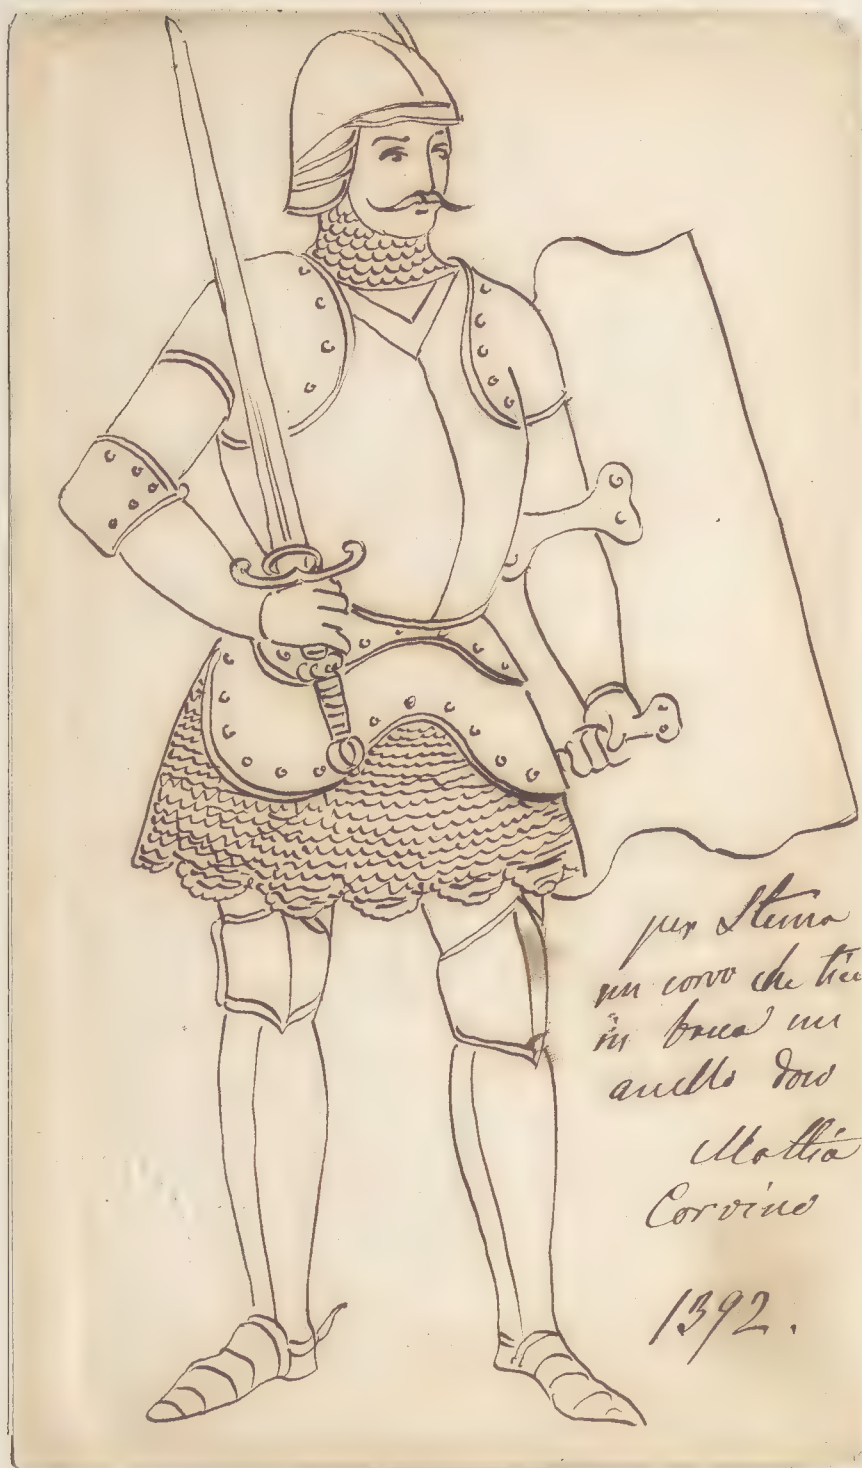 per Stema
un corvo che tie
in bocca un
anello doro
Mattia
Corvino
1392.